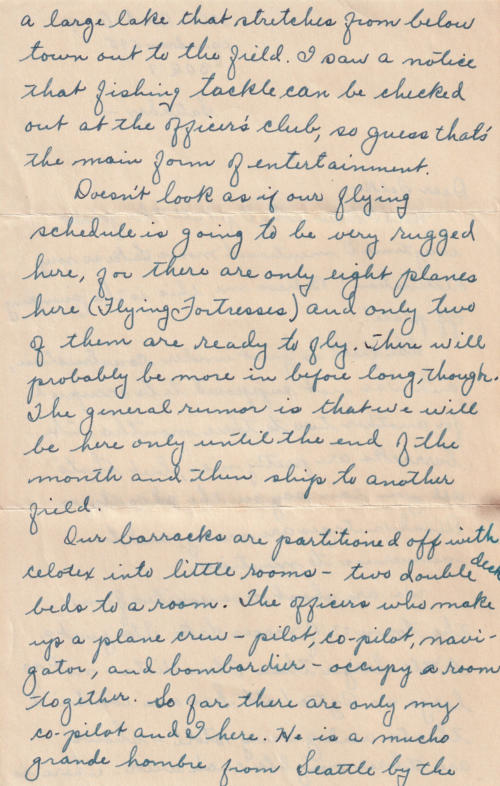 a large lake that stretches from below
town out to the field. I saw a notice
that fishing tackle can be checked
out at the officer's club, so guess that's
the main form of entertainment.
Doesn't look as if our flying
schedule is going to be very rugged
here, for there are only eight planes
here (Flying Fortresses) and only two
of them are ready to fly. There will
probably be more in before long, though.
The general rumor is that we will
be here only until the end of the
month and then ship to another
field.
Our barracks are partitioned off with
celotex into little rooms - two double deck
beds to a room. The officers who make
up a plane crew - pilot, co-pilot, navi-
gator, and bombardier - occupy a room
together. So far there are only my
co-pilot and I here. He is a mucho
grande hombre from Seattle by the